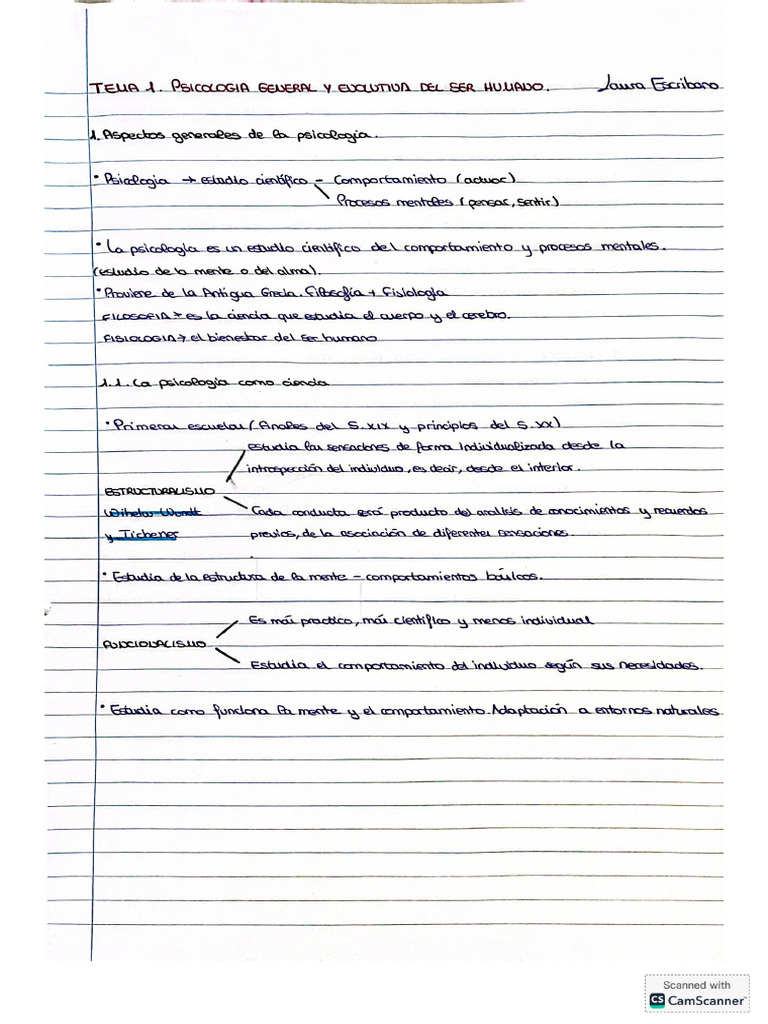 TEMA 1. PSICOLOGIA GENERAL Y EVOLUTIVA DEL SER HUMANO. Laura Escribano
1. Aspectos generales de la psicología.
• Psicología → estudio científico - Comportamiento (actuar)
Procesos mentales (pensar, sentir)
• La psicología es un estudio científico del comportamiento y procesos mentales.
(estudio de la mente o del alma).
• Proviene de la Antigua Grecia. Filosofía + Fisiología
FILOSOFIA → es la ciencia que estudia el cuerpo y el cerebro.
FISIOLOGIA → el bienestar del ser humano
1.1. La psicología como ciencia
• Primeras escuelas (Anales del S. XIX y principios del S. XX)
estudia las sensaciones de forma individualizada desde la
introspección del individuo, es decir, desde el interior.
ESTRUCTURALISMO
Wihelar Wundt Cada conducta será producto del análisis de conocimientos y recuerdos
y Tichener previos, de la asociación de diferentes sensaciones.
• Estudia de la estructura de la mente - comportamientos básicos.
Es más practico, más científico y menos individual
FUNCIONALISMO
Estudia el comportamiento del individuo según sus necesidades.
• Estudia como funciona la mente y el comportamiento. Adaptación a entornos naturales
Scanned with
CS CamScanner